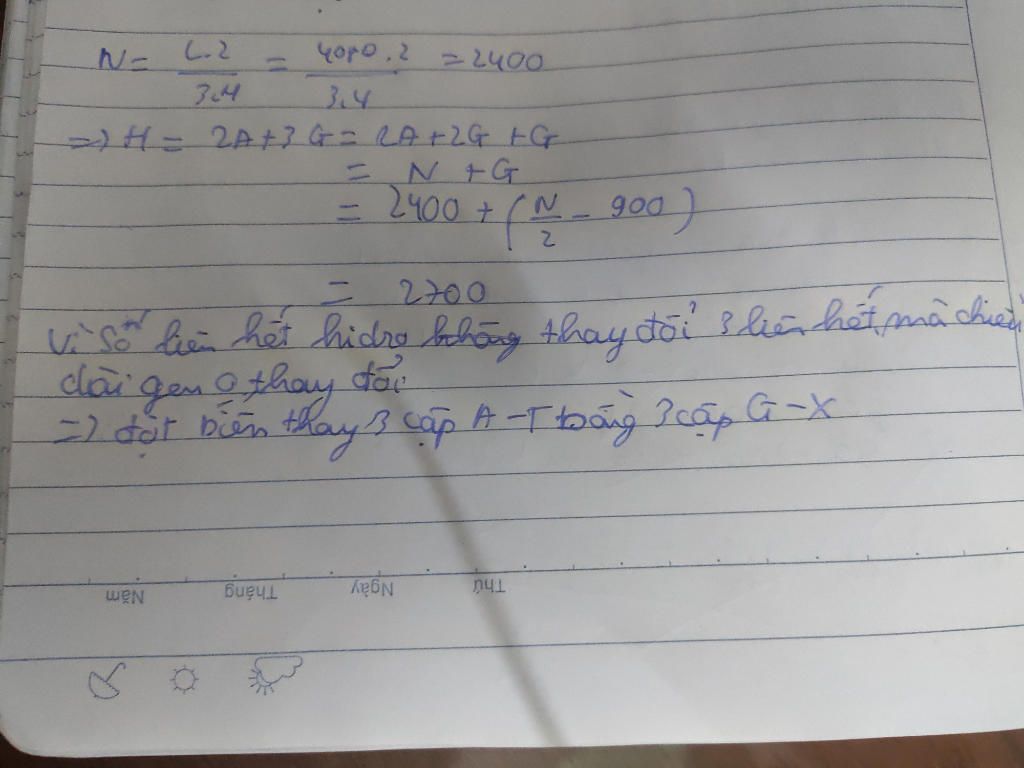 N = L.2 / 3.4 = 4080.2 / 3.4 = 2400
=> H = 2A+3G = 2A+2G+G
= N+G
= 2400 + (N/2 - 900)
= 2700
Vì số liên kết hidro thay đổi 3 liên kết, mà chiều
dài gen 0 thay đổi
=> đột biến thay 3 cặp A-T bằng 3 cặp G-X
Thứ Ngày Tháng Năm